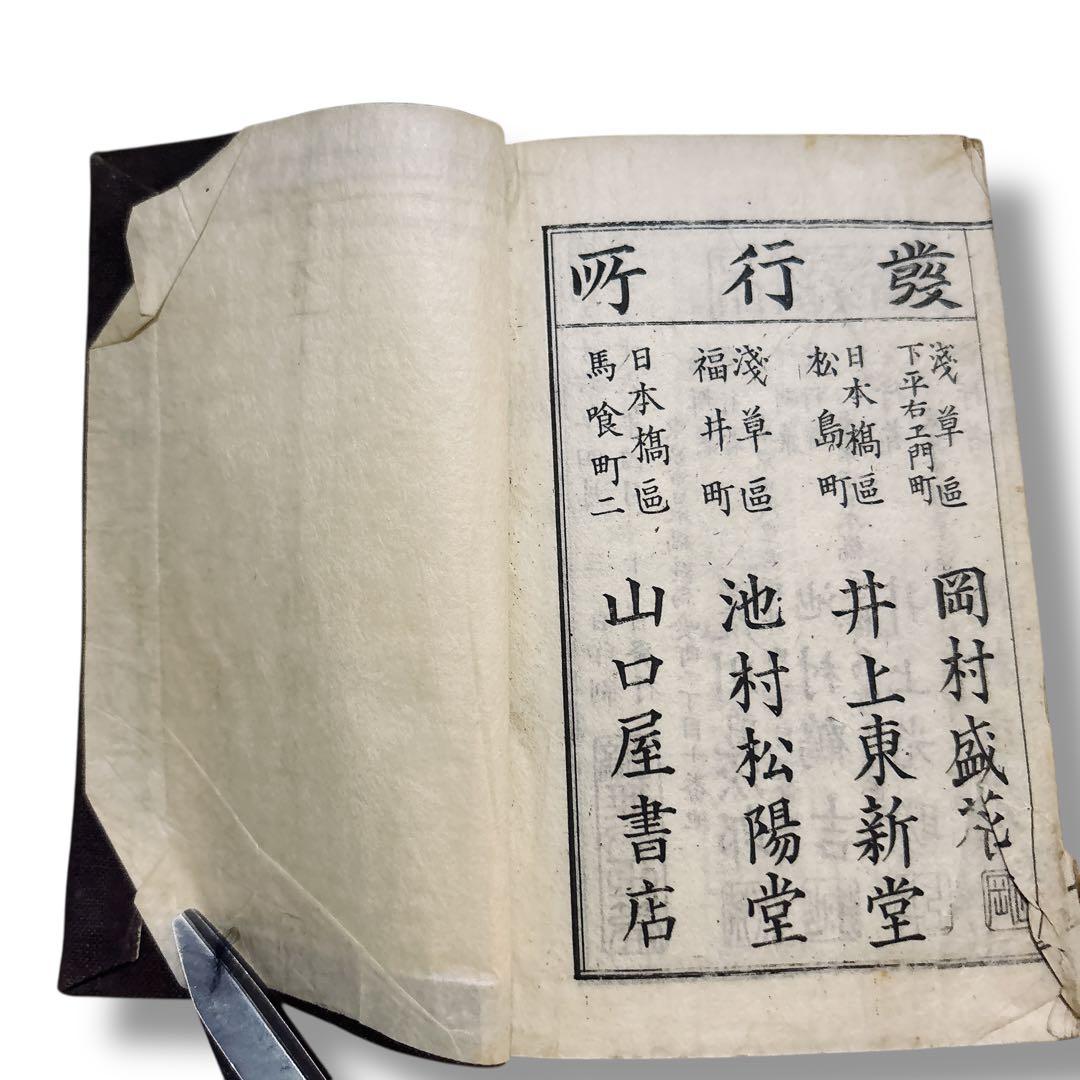 發行所
淺草區
下平右ヱ門町
岡村盛花
日本橋區
松島町
井上東新堂
淺草區
福井町
池村松陽堂
日本橋區
馬喰町二
山口屋書店